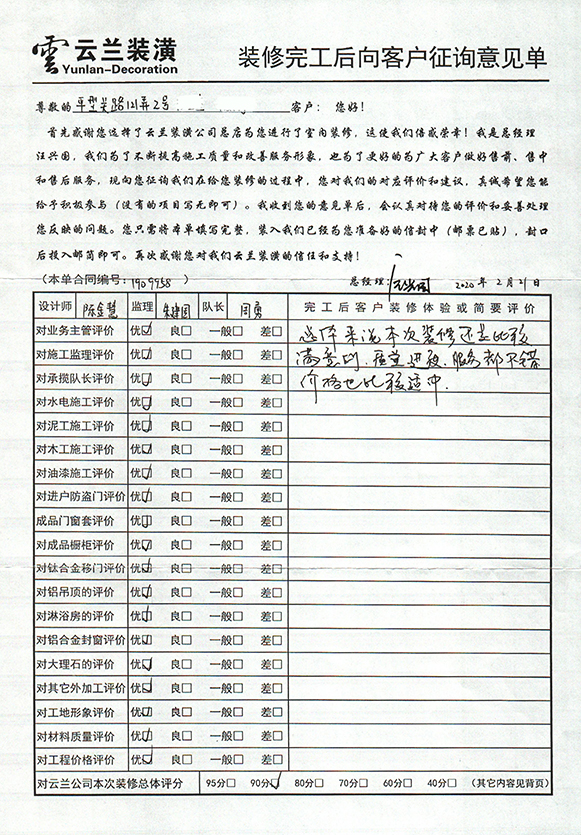 雲 云兰装潢
Yunlan-Decoration
装修完工后向客户征询意见单
尊敬的 平型关路121弄2号 客户： 您好！
首先感谢您选择了云兰装潢公司总店为您进行了室内装修，这使我们倍感荣幸！我是总经理
汪兴国，我们为了不断提高施工质量和改善服务形象，也为了更好的为广大客户做好售前、售中
和售后服务，现向您征询我们在给您装修的过程中，您对我们的对应评价和建议，真诚希望您能
给予积极参与（没有的项目写无即可）。我收到您的意见单后，会认真对待您的评价和妥善处理
您反映的问题。您只需将本单填写完整，装入我们已经为您准备好的信封中（邮票已贴），封口
后投入邮筒即可。再次感谢您对我们云兰装潢的信任和支持！
（本单合同编号：1909958 ） 总经理： 2020 年 2月21日
设计师 陈金慧 监理 朱建国 队长 闫勇 完工后客户装修体验或简要评价
对业务主管评价 优☑ 良□ 一般□ 差□ 选择来说本次装修还是比较
对施工监理评价 优☑ 良□ 一般□ 差□ 满意的，质量、进度、服务都不错
对承揽队长评价 优☑ 良□ 一般□ 差□ 价格也比较适中.
对水电施工评价 优☑ 良□ 一般□ 差□
对泥工施工评价 优☑ 良□ 一般□ 差□
对木工施工评价 优☑ 良□ 一般□ 差□
对油漆施工评价 优☑ 良□ 一般□ 差□
对进户防盗门评价 优☑ 良□ 一般□ 差□
成品门窗套评价 优☑ 良□ 一般□ 差□
对成品橱柜评价 优☑ 良□ 一般□ 差□
对钛合金移门评价 优☑ 良□ 一般□ 差□
对铝吊顶的评价 优☑ 良□ 一般□ 差□
对淋浴房的评价 优☑ 良□ 一般□ 差□
对铝合金封窗评价 优☑ 良□ 一般□ 差□
对大理石的评价 优☑ 良□ 一般□ 差□
对其它外加工评价 优☑ 良□ 一般□ 差□
对工地形象评价 优☑ 良□ 一般□ 差□
对材料质量评价 优☑ 良□ 一般□ 差□
对工程价格评价 优☑ 良□ 一般□ 差□
对云兰公司本次装修总体评分 95分□ 90分☑ 80分□ 70分□ 60分□ 40分□ （其它内容见背页）